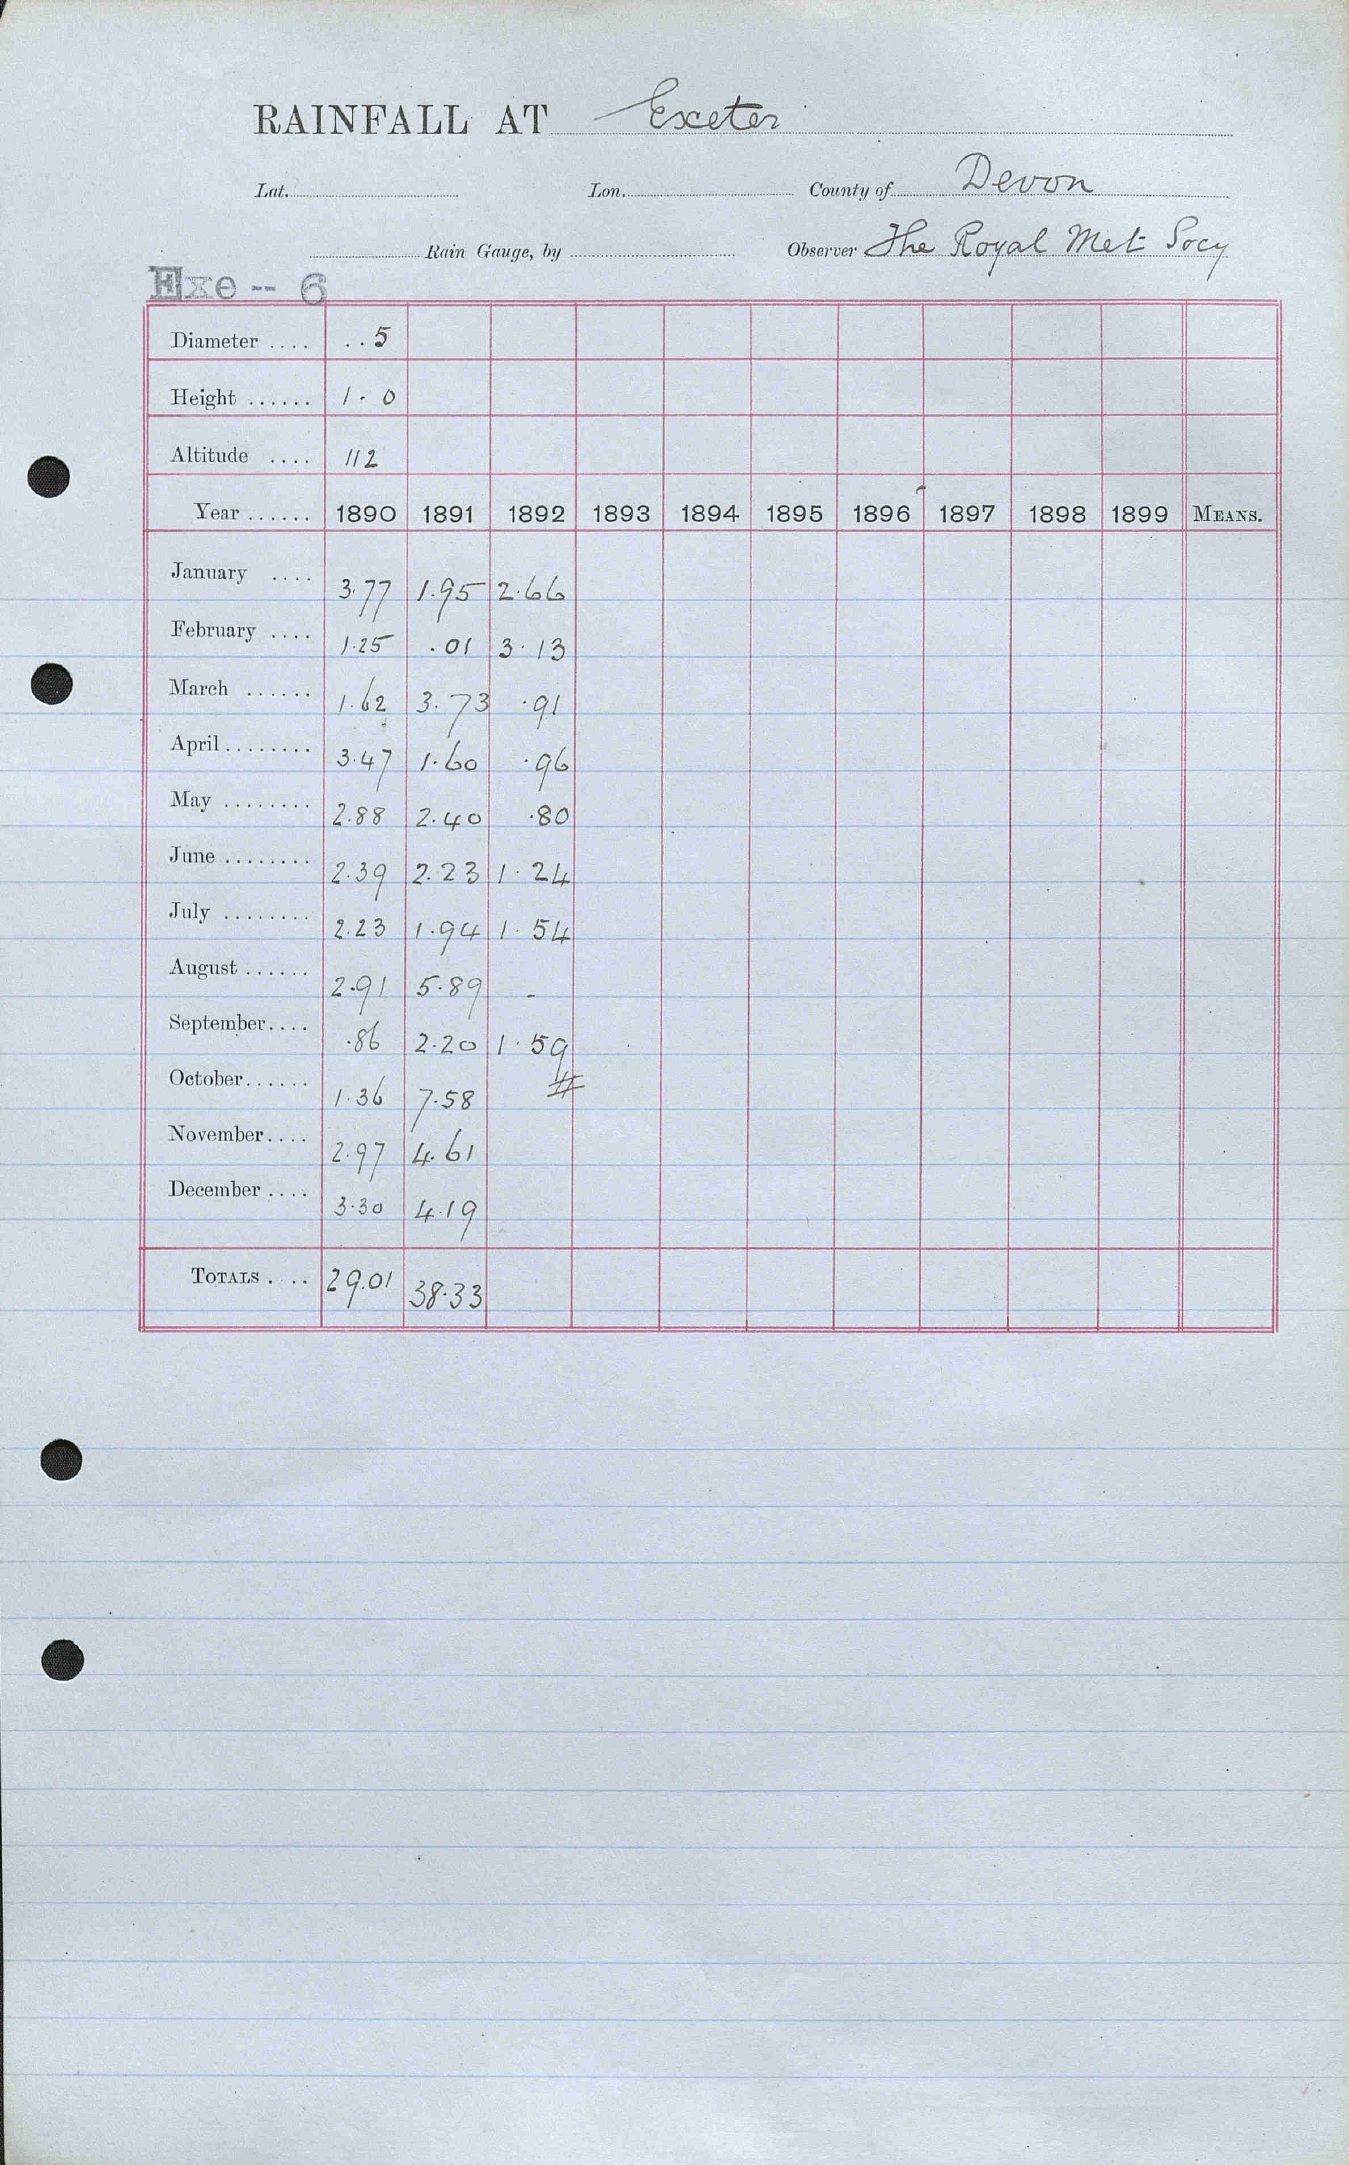 RAINFALL AT Exeter
Lat. Lon. County of Devon
Rain Gauge, by Observer The Royal Met Socy
Exe -- 6
Diameter .... .. 5
Height ...... 1 - 0
Altitude .... 112
Year ...... 1890 1891 1892 1893 1894 1895 1896 1897 1898 1899 MEANS.
January .... 3.77 1.95 2.66
February .... 1.25 .01 3.13
March ...... 1.62 3.73 .91
April ........ 3.47 1.60 .96
May ........ 2.88 2.40 .80
June ........ 2.39 2.23 1.24
July ........ 2.23 1.94 1.54
August ...... 2.91 5.89 -
September .... .86 2.20 1.59
October ...... 1.36 7.58 #
November .... 2.97 4.61
December .... 3.30 4.19
TOTALS .... 29.01 38.33